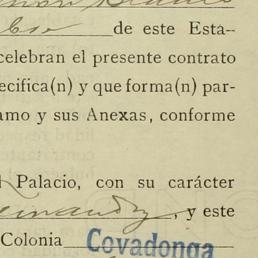 de este Esta-
celebran el presente contrato
ecifica(n) y que forma(n) par-
amo y sus Anexas, conforme
Palacio, con su carácter
ernandz, y este
Colonia Covadonga